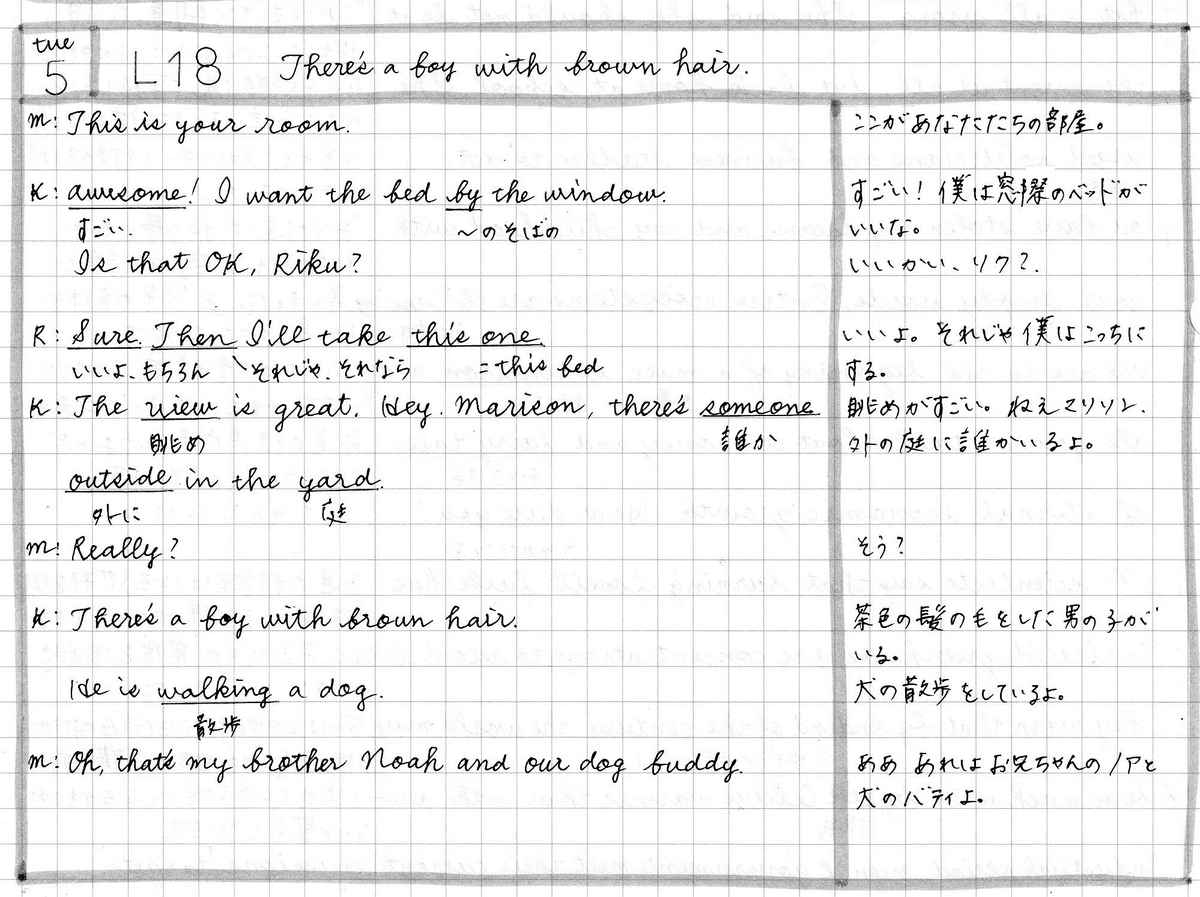 tue
5 L18 There's a boy with brown hair.
M: This is your room. ここがあなたたちの部屋。
K: awesome! I want the bed by the window. すごい！僕は窓際のベッドが
すごい. 〜のそばの いいな。
Is that OK, Riku? いいかい、リク?.
R: Sure. Then I'll take this one. いいよ。それじゃ僕はこっちに
いいよ、もちろん それじゃ、それなら =this bed する。
K: The view is great. Hey. Marison, there's someone 眺めがすごい。ねえマリソン、
眺め 誰か 外の庭に誰かいるよ。
outside in the yard.
外に 庭
M: Really? そう?
K: There's a boy with brown hair. 茶色の髪の毛をした男の子が
いる。
He is walking a dog. 犬の散歩をしているよ。
散歩
M: Oh, that's my brother Noah and our dog buddy. ああ あれはお兄ちゃんのノアと
犬のバディよ。